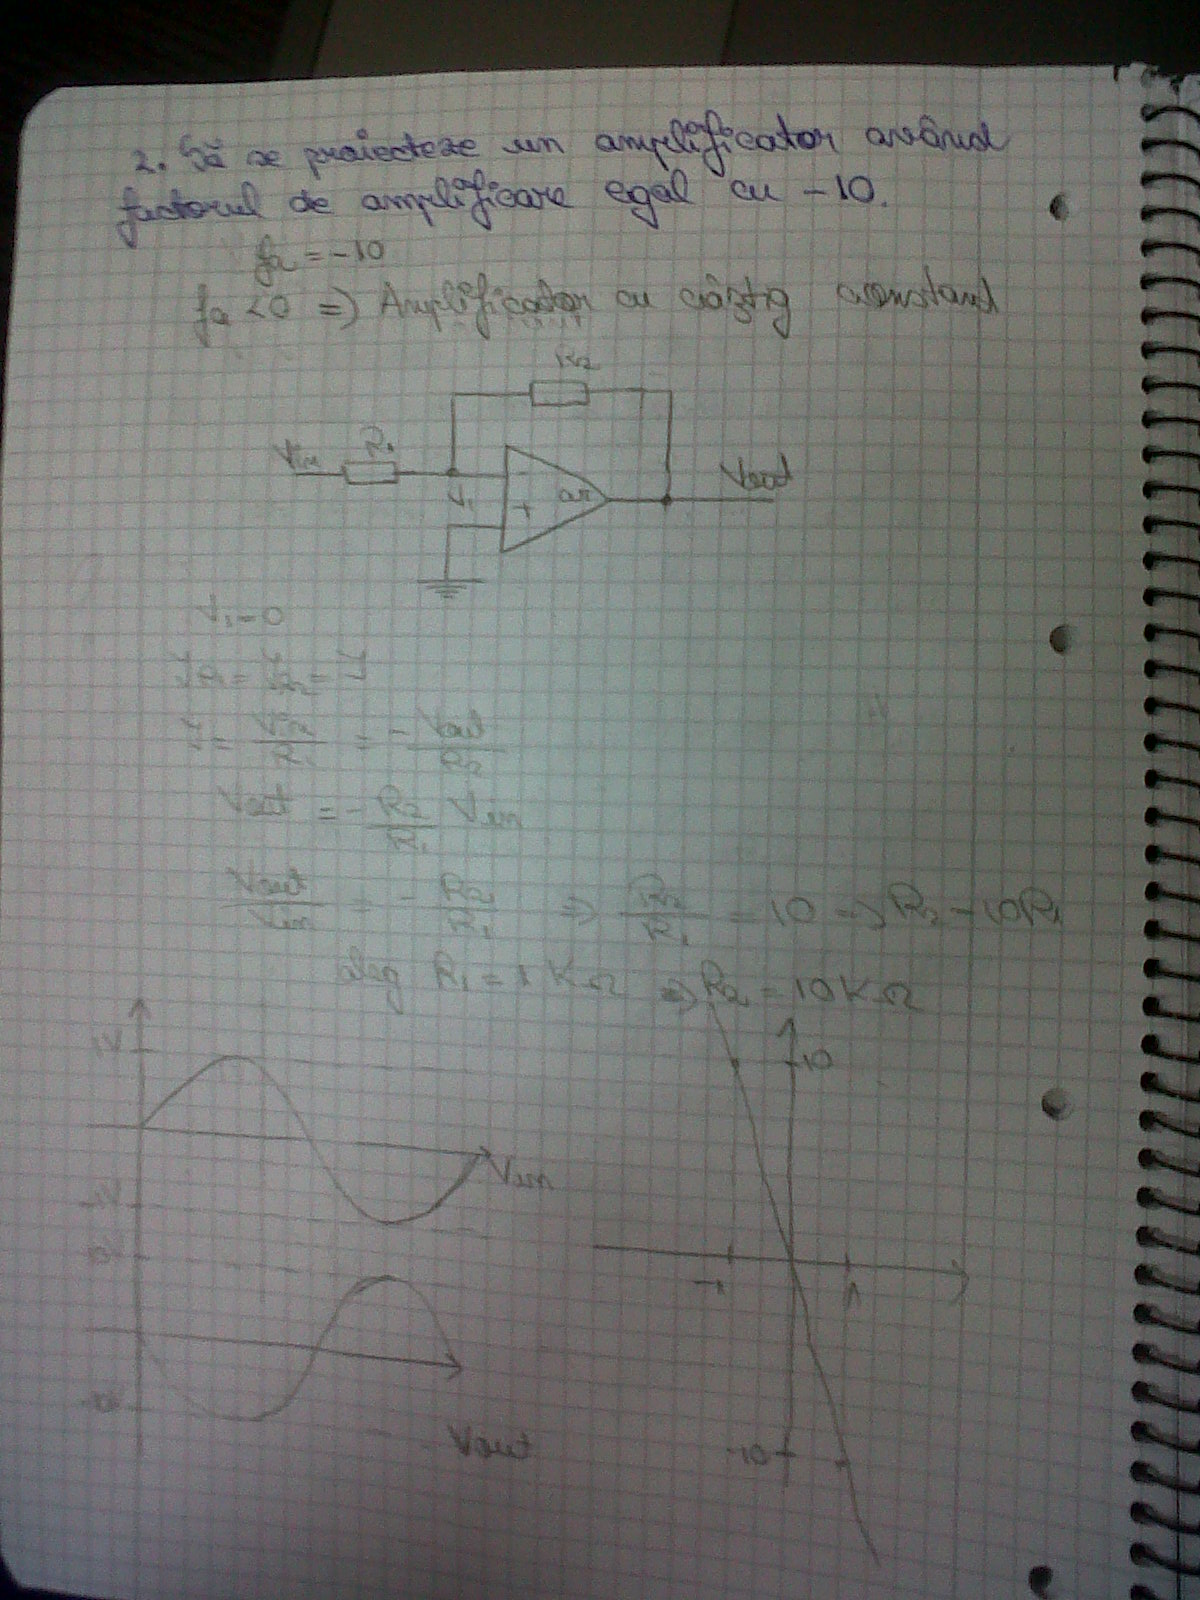 2. Să se proiecteze un amplificator având
factorul de amplificare egal cu -10.
fa = -10
fa < 0 => Amplificator cu câștig constant
R2
Vin R1
V1
-
+
AO
Vout
V1 = 0
IR1 = IR2 = I
I = Vin/R1 = - Vout/R2
Vout = - R2/R1 Vin
Vout/Vin = - R2/R1 => R2/R1 = 10 => R2 = 10R1
aleg R1 = 1 KΩ => R2 = 10 KΩ
1V
10
Vin
-1V
-1 1
Vout
-10